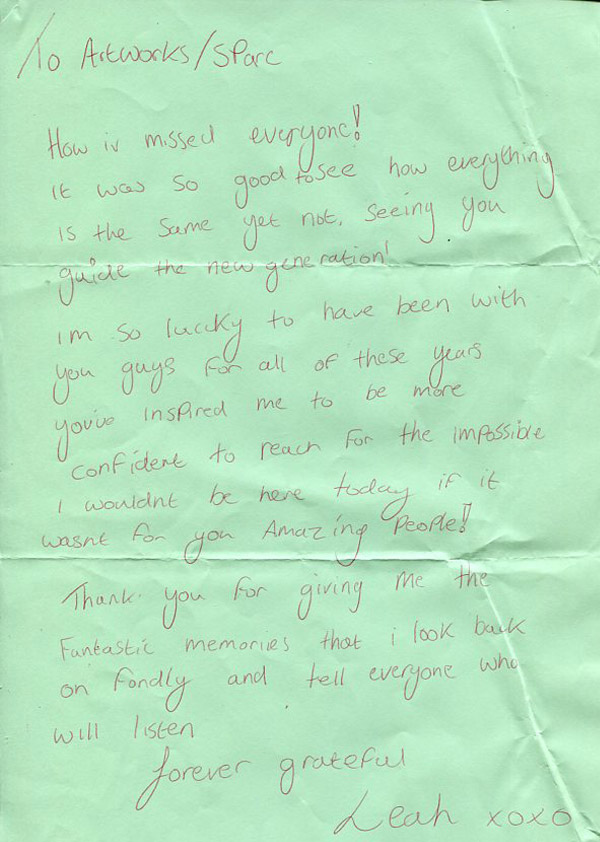 To Artworks/Sparc
How iv missed everyone!
it was so good to see how everything
is the same yet not. seeing you
guide the new generation!
im so luccky to have been with
you guys for all of these years
you've inspired me to be more
confident to reach for the impossible
i wouldnt be here today if it
wasnt for you Amazing People!
Thank you for giving me the
Fantastic memories that i look back
on fondly and tell everyone who
will listen
forever grateful
Leah xoxo